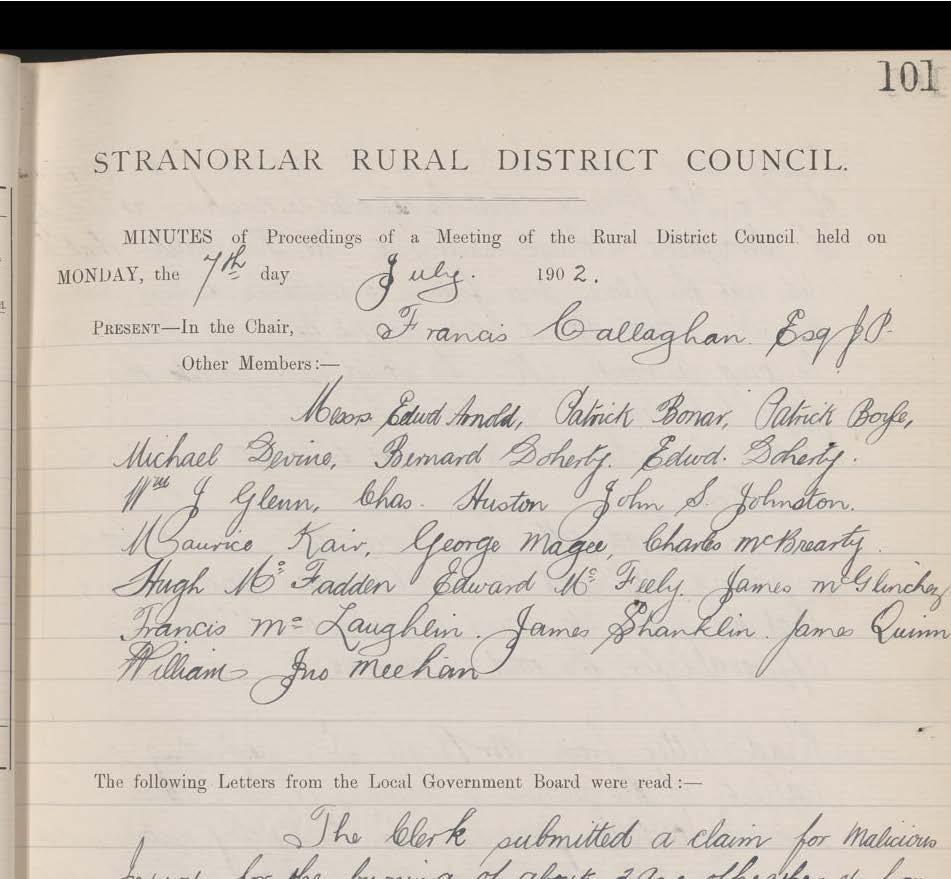 101
STRANORLAR RURAL DISTRICT COUNCIL.
MINUTES of Proceedings of a Meeting of the Rural District Council held on
MONDAY, the 7th day July. 1902.
PRESENT—In the Chair, Francis Callaghan. Esq J.P.
Other Members:—
Messrs. Edwd Arnold, Patrick Bonar, Patrick Boyle,
Michael Devine, Bernard Doherty. Edwd. Doherty.
Wm J Glenn, Chas. Huston John S. Johnston.
Maurice Kair, George Magee, Charles McBrearty
Hugh Mc Fadden Edward Mc Feely. James McGlinchey
Francis Mc Laughlin. James Shanklin. James Quinn
William Jno Meehan
The following Letters from the Local Government Board were read:—
The Clerk submitted a claim for Malicious
for the burning of about